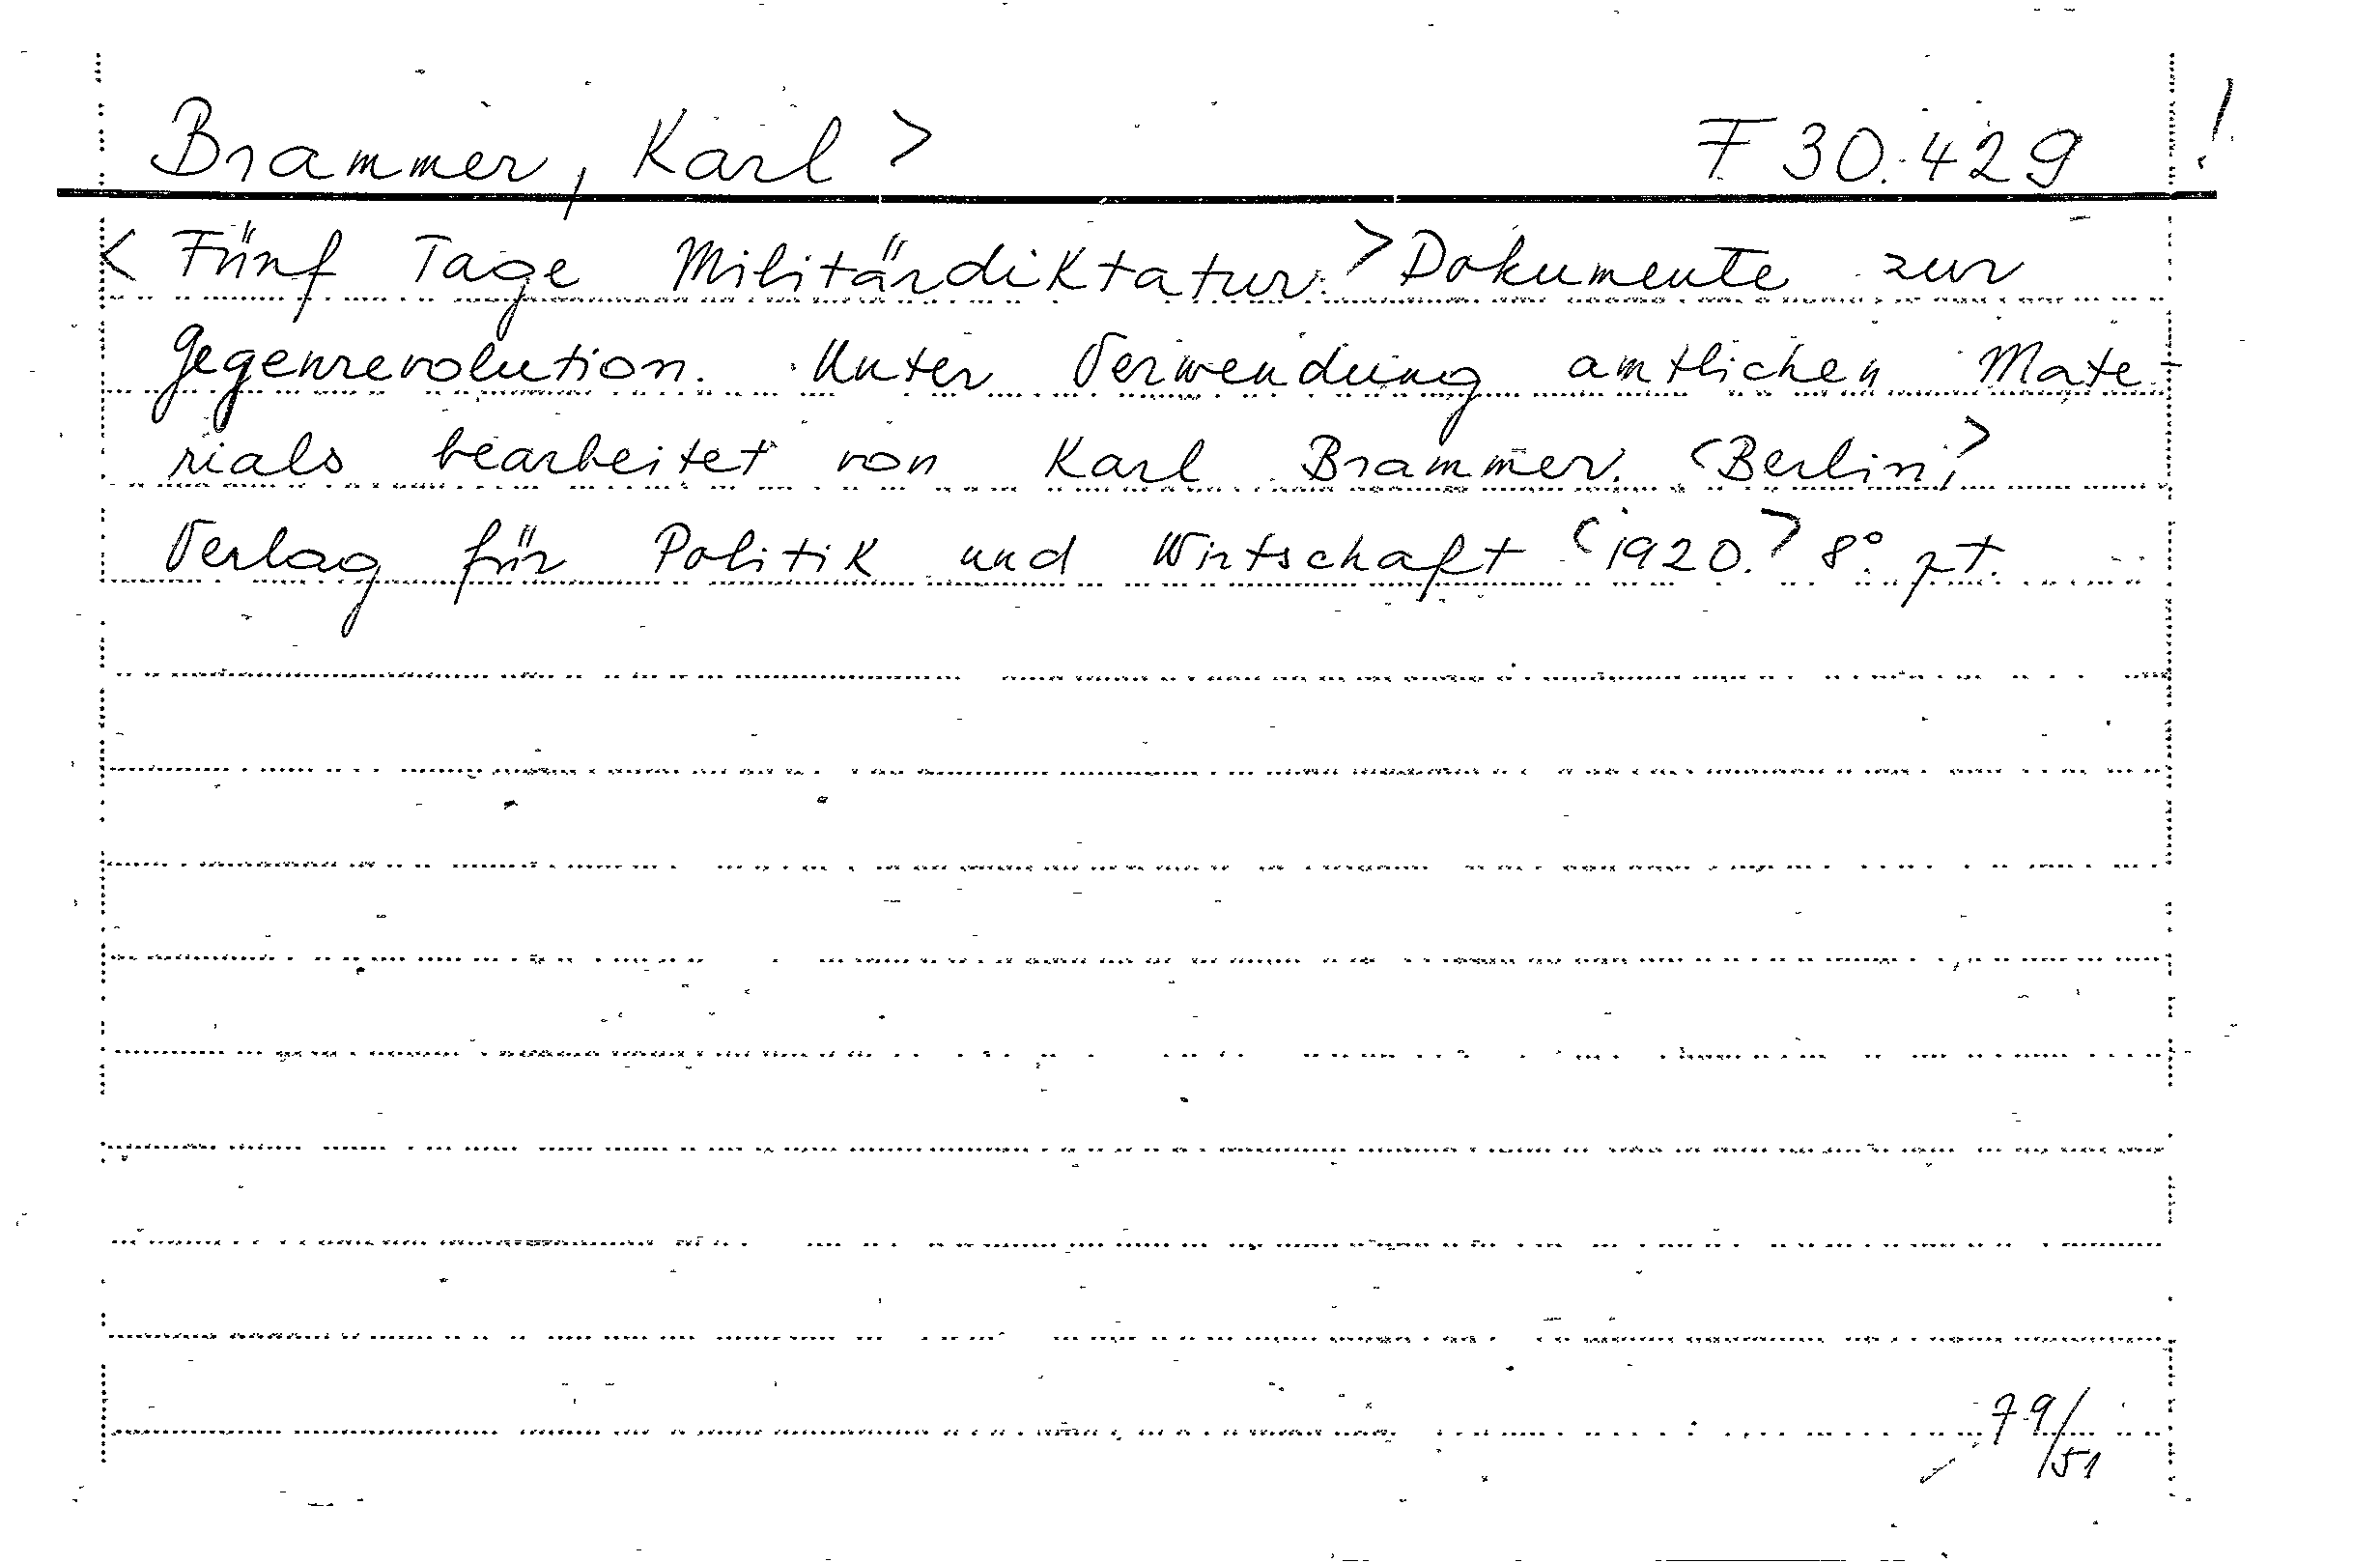 Brammer, Karl > F 30.429 !
< Fünf Tage Militärdiktatur. > Dokumente zur
Gegenrevolution. Unter Verwendung amtlichen Mate-
rials bearbeitet von Karl Brammer. <Berlin,>
Verlag für Politik und Wirtschaft <1920.> 8°. pt.
79/51